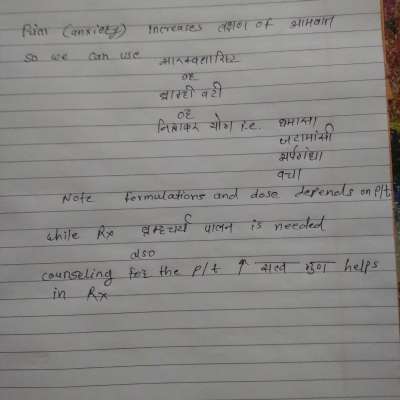 चिंता (anxiety) increases लक्षण of आमवात
so we can use सारस्वतारिष्ट
OR
ब्राम्ही वटी
OR
निद्राकर योग i.e. धमासा
जटामांसी
सर्पगंधा
वचा
Note formulations and dose depends on p/t
while Rx ब्रम्हचर्य पालन is needed
also
counseling for the p/t ↑ सत्व गुण helps
in Rx